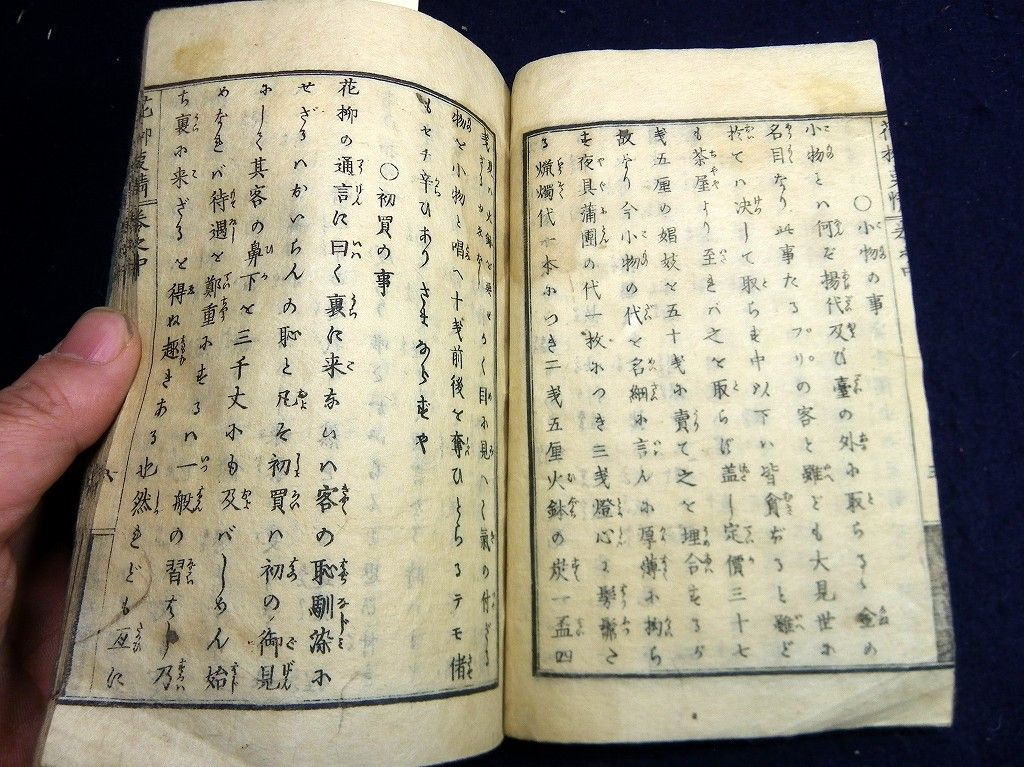 ○小物の事
小物とハ何ぞ揚代及び臺の外に取らるゝ金の
名目なり此事たるプリの客と雖ども大見世に
於てハ决して取らも中以下ハ皆貪ぢると雖ど
も茶屋より至れバ之を取らば盖し定價三十七
戋五厘の娼妓を五十戋に賣て之を埋合するが
故なり今小物の代を名細に言んに厚薄に拘ら
を夜具蒲團の代一枚につき三戋燈心
る蝋燭代一本につき二戋五厘火鉢の炭一盃四
戋
物を小物と唱へ十戋前後を奪ひとらるテモ偖
もセチ辛ひありさまならずや
○初買の事
花柳の通言に曰く裏に来ないハ客の恥馴染に
せざるハかいちんの恥と凡そ初買ハ初の御見
にしく其客の鼻下を三千丈にも及バしめん始
めなれバ待遇を鄭重にするハ一般の習はし乃
ち裏に来ざるを得ぬ趣きある也然れども亙に
花柳事情 卷之中